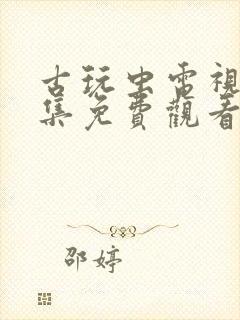 古玩虫電視
集免費觀看
邵婷